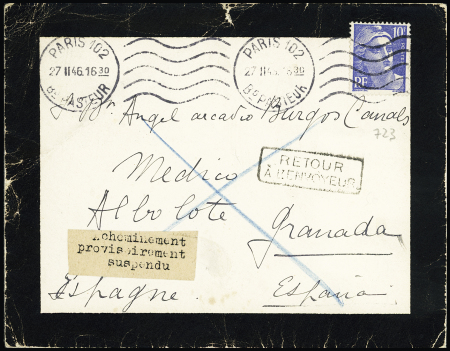 PARIS 102
27 II 46. 16 30
Bd PASTEUR
PARIS 102
27 II 46. 16 30
Bd PASTEUR
10F
RF
Sr Dn Angel arcadio Burgos Canals
723
RETOUR
À L'ENVOYEUR
Medico
Albolote Granada
Acheminement
provisoirement
suspendu
Espagne España